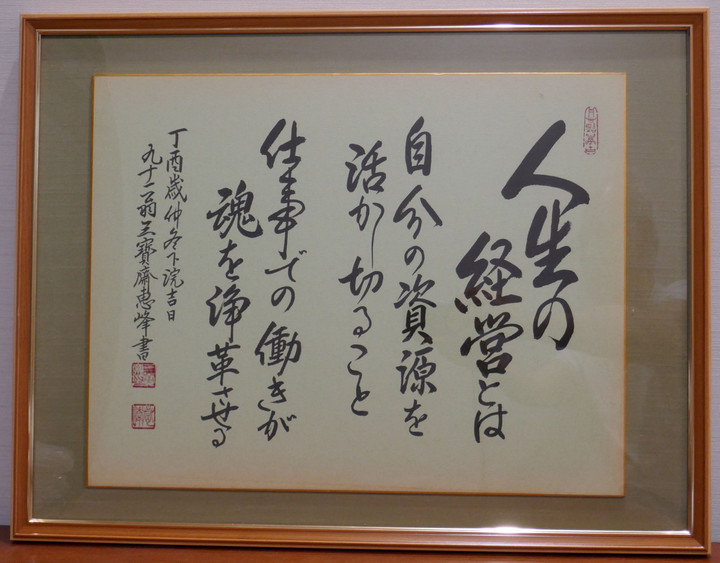 人生の
経営とは
自分の資源を
活かし切ること
仕事での働きが
魂を浄革させる
丁酉歳仲冬下浣吉日
九十二翁三寶齋惠峰書